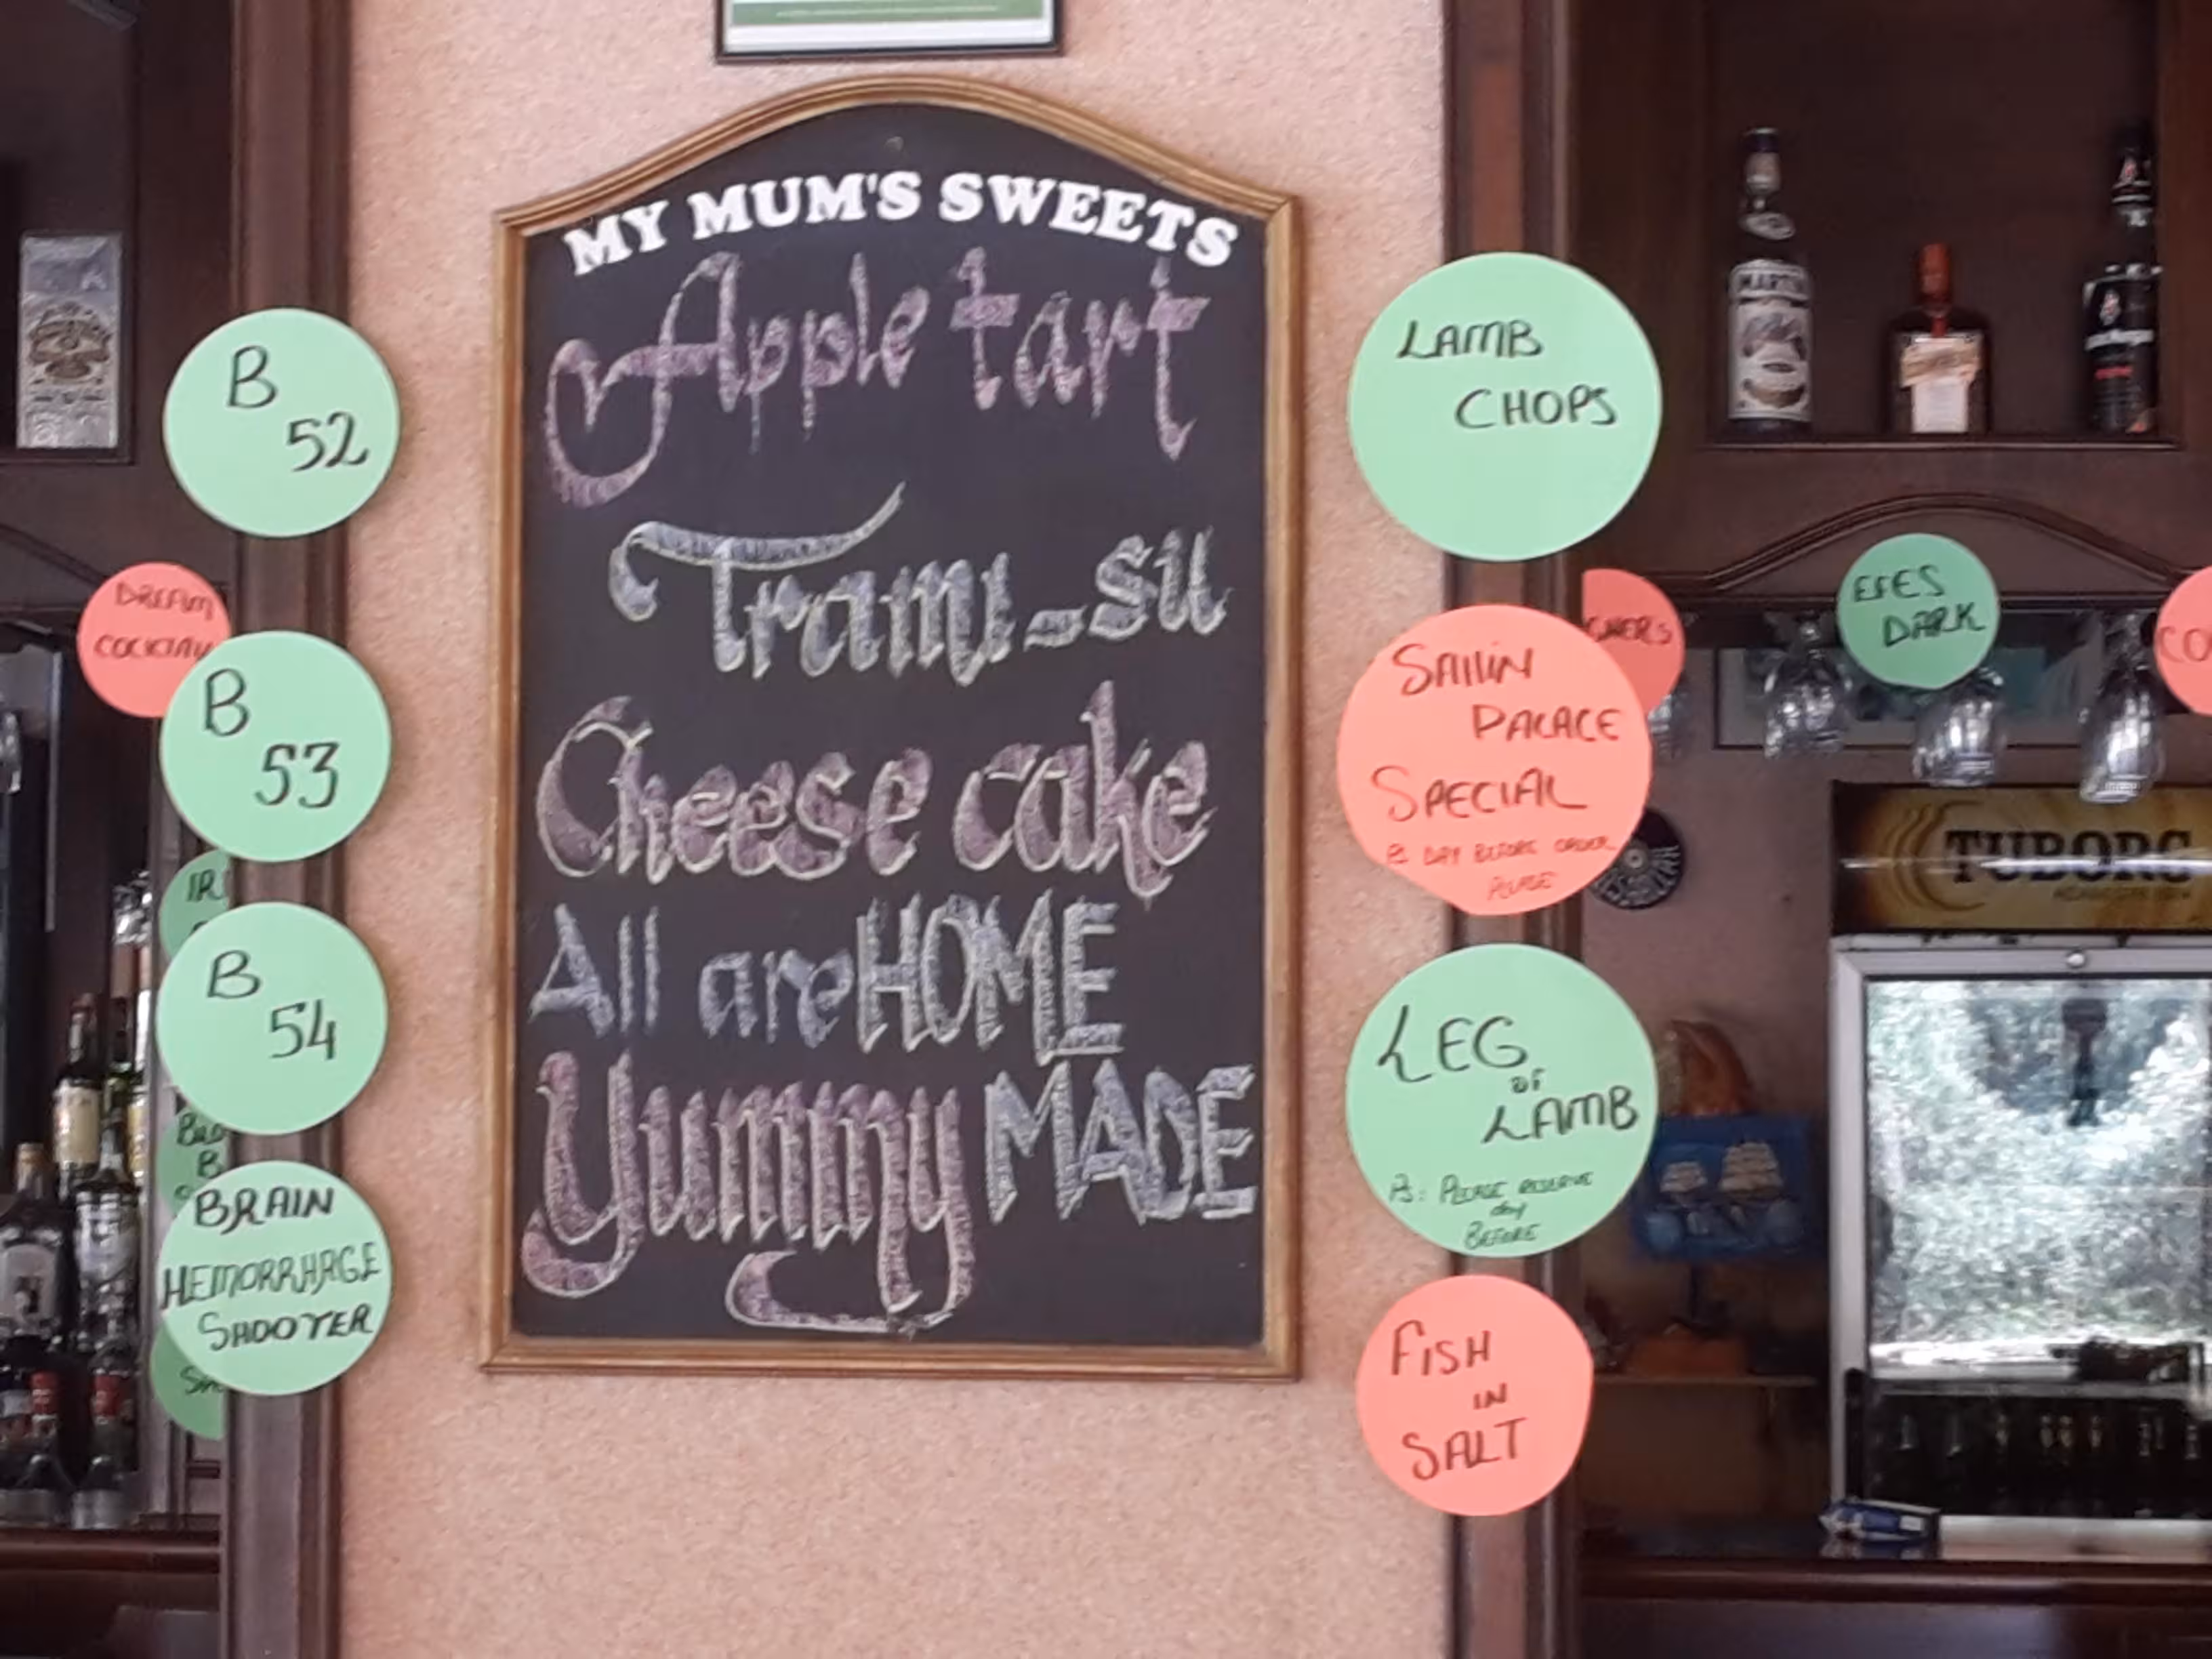 MY MUM'S SWEETS
Apple tart
Trami-su
Cheese cake
All are HOME
Yummy MADE
B
52
DREAM
COCKTAIL
B
53
B
54
BRAIN
HEMORRHAGE
SHOOTER
LAMB
CHOPS
SAILIN
PALACE
SPECIAL
PS DAY BEFORE ORDER
PLEASE
LEG
OF
LAMB
PS: PLEASE RESERVE
day
BEFORE
FISH
IN
SALT
EFES
DARK
TUBORG
MARTINI